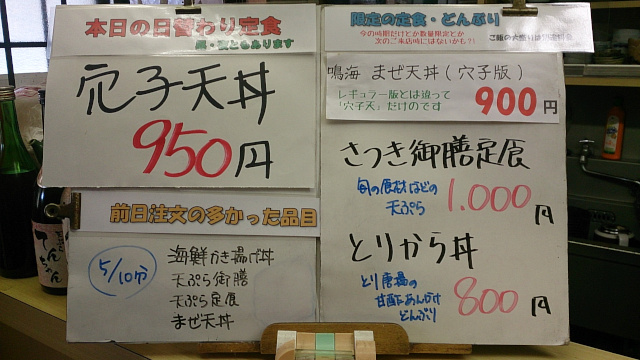 本日の日替わり定食
昼・夜ともあります
穴子天丼
950円
前日注文の多かった品目
5/10分
海鮮かき揚げ丼
天ぷら御膳
天ぷら定食
まぜ天丼
限定の定食・どんぶり
今の時期だけとか数量限定とか
次のご来店時にはないかも?!
ご飯の大盛りは
鳴海 まぜ天丼(穴子版)
レギュラー版とは違って
「穴子天」だけのです
900円
さつき御膳定食
旬の食材などの
天ぷら
1.000円
とりから丼
とり唐揚の
甘酢あんかけ
どんぶり
800円